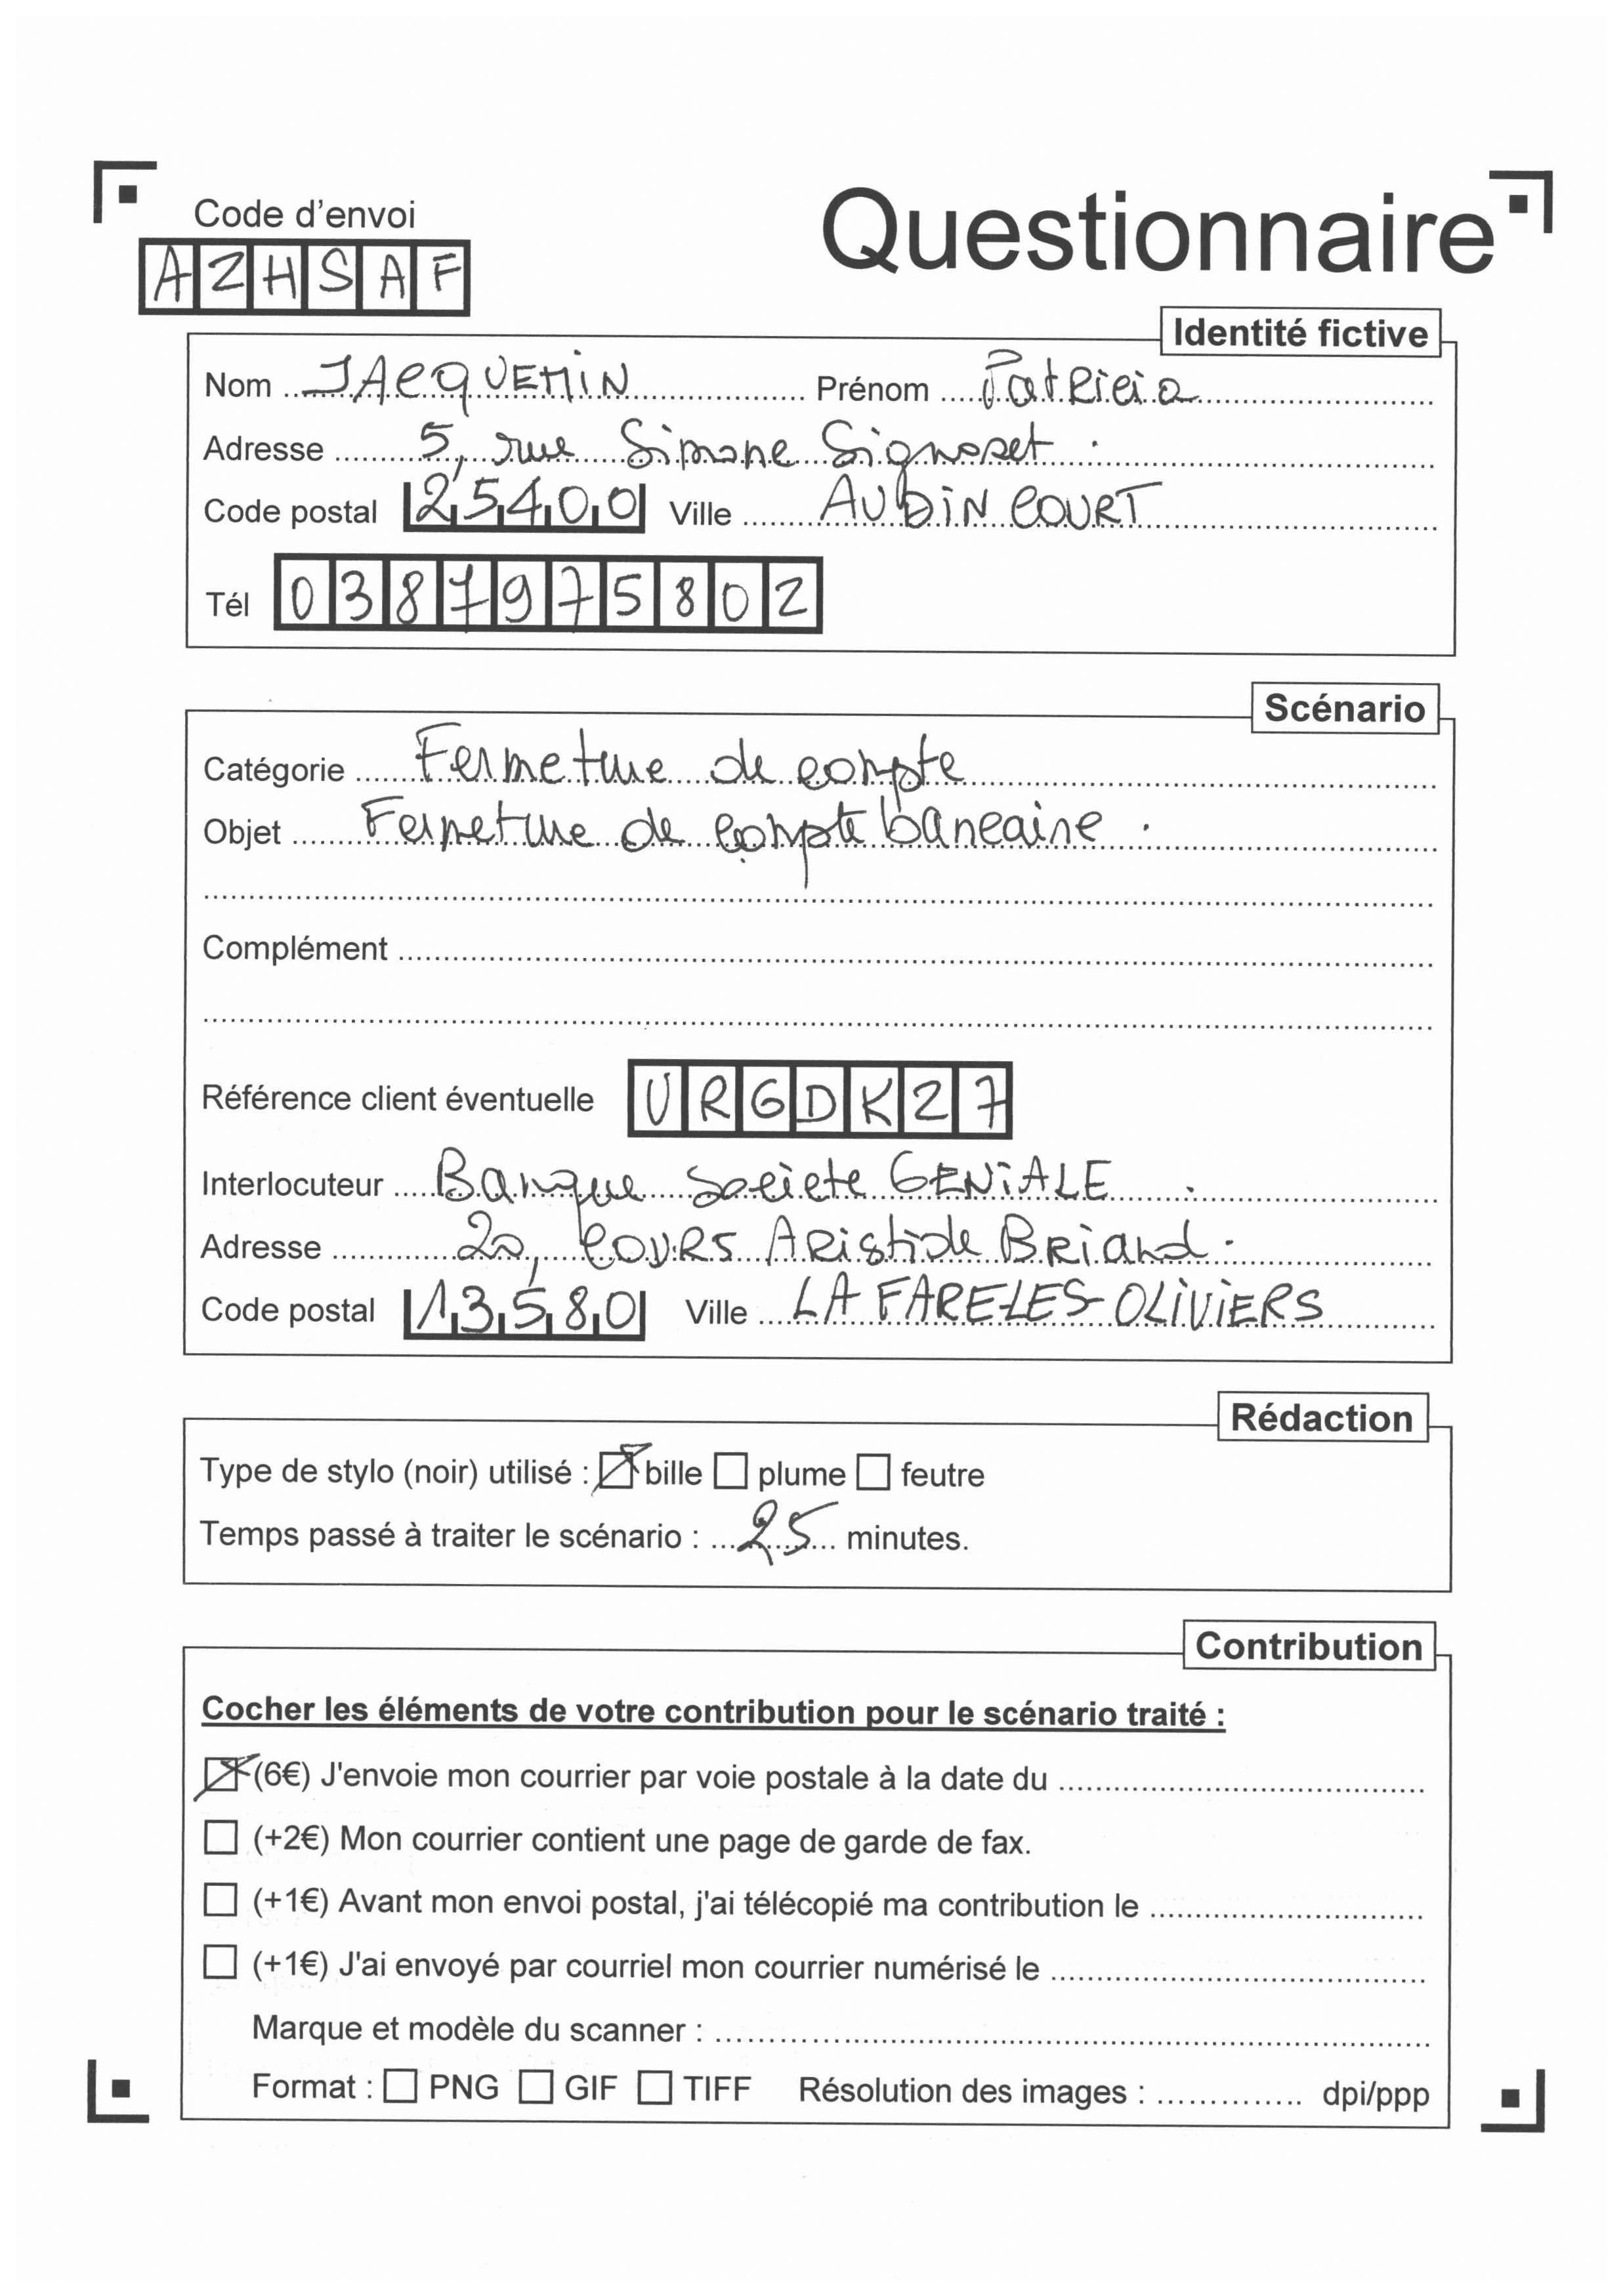 Code d'envoi
Questionnaire
AZHSAF
Identité fictive
Nom JACQUEMIN Prénom Patricia
Adresse 5, rue Simone Signoret.
Code postal 25400 Ville AUDINCOURT
Tél 0387975802
Scénario
Catégorie Fermeture de compte
Objet Fermeture de compte bancaire.
Complément
Référence client éventuelle URGDK27
Interlocuteur Banque Societe GENIALE.
Adresse 20, COURS ARistide BRiand.
Code postal 13580 Ville LA FARE-LES-OLIVIERS
Rédaction
Type de stylo (noir) utilisé : bille plume feutre
Temps passé à traiter le scénario : 25 minutes.
Contribution
Cocher les éléments de votre contribution pour le scénario traité :
(6€) J'envoie mon courrier par voie postale à la date du
(+2€) Mon courrier contient une page de garde de fax.
(+1€) Avant mon envoi postal, j'ai télécopié ma contribution le
(+1€) J'ai envoyé par courriel mon courrier numérisé le
Marque et modèle du scanner :
Format : PNG GIF TIFF Résolution des images : dpi/ppp